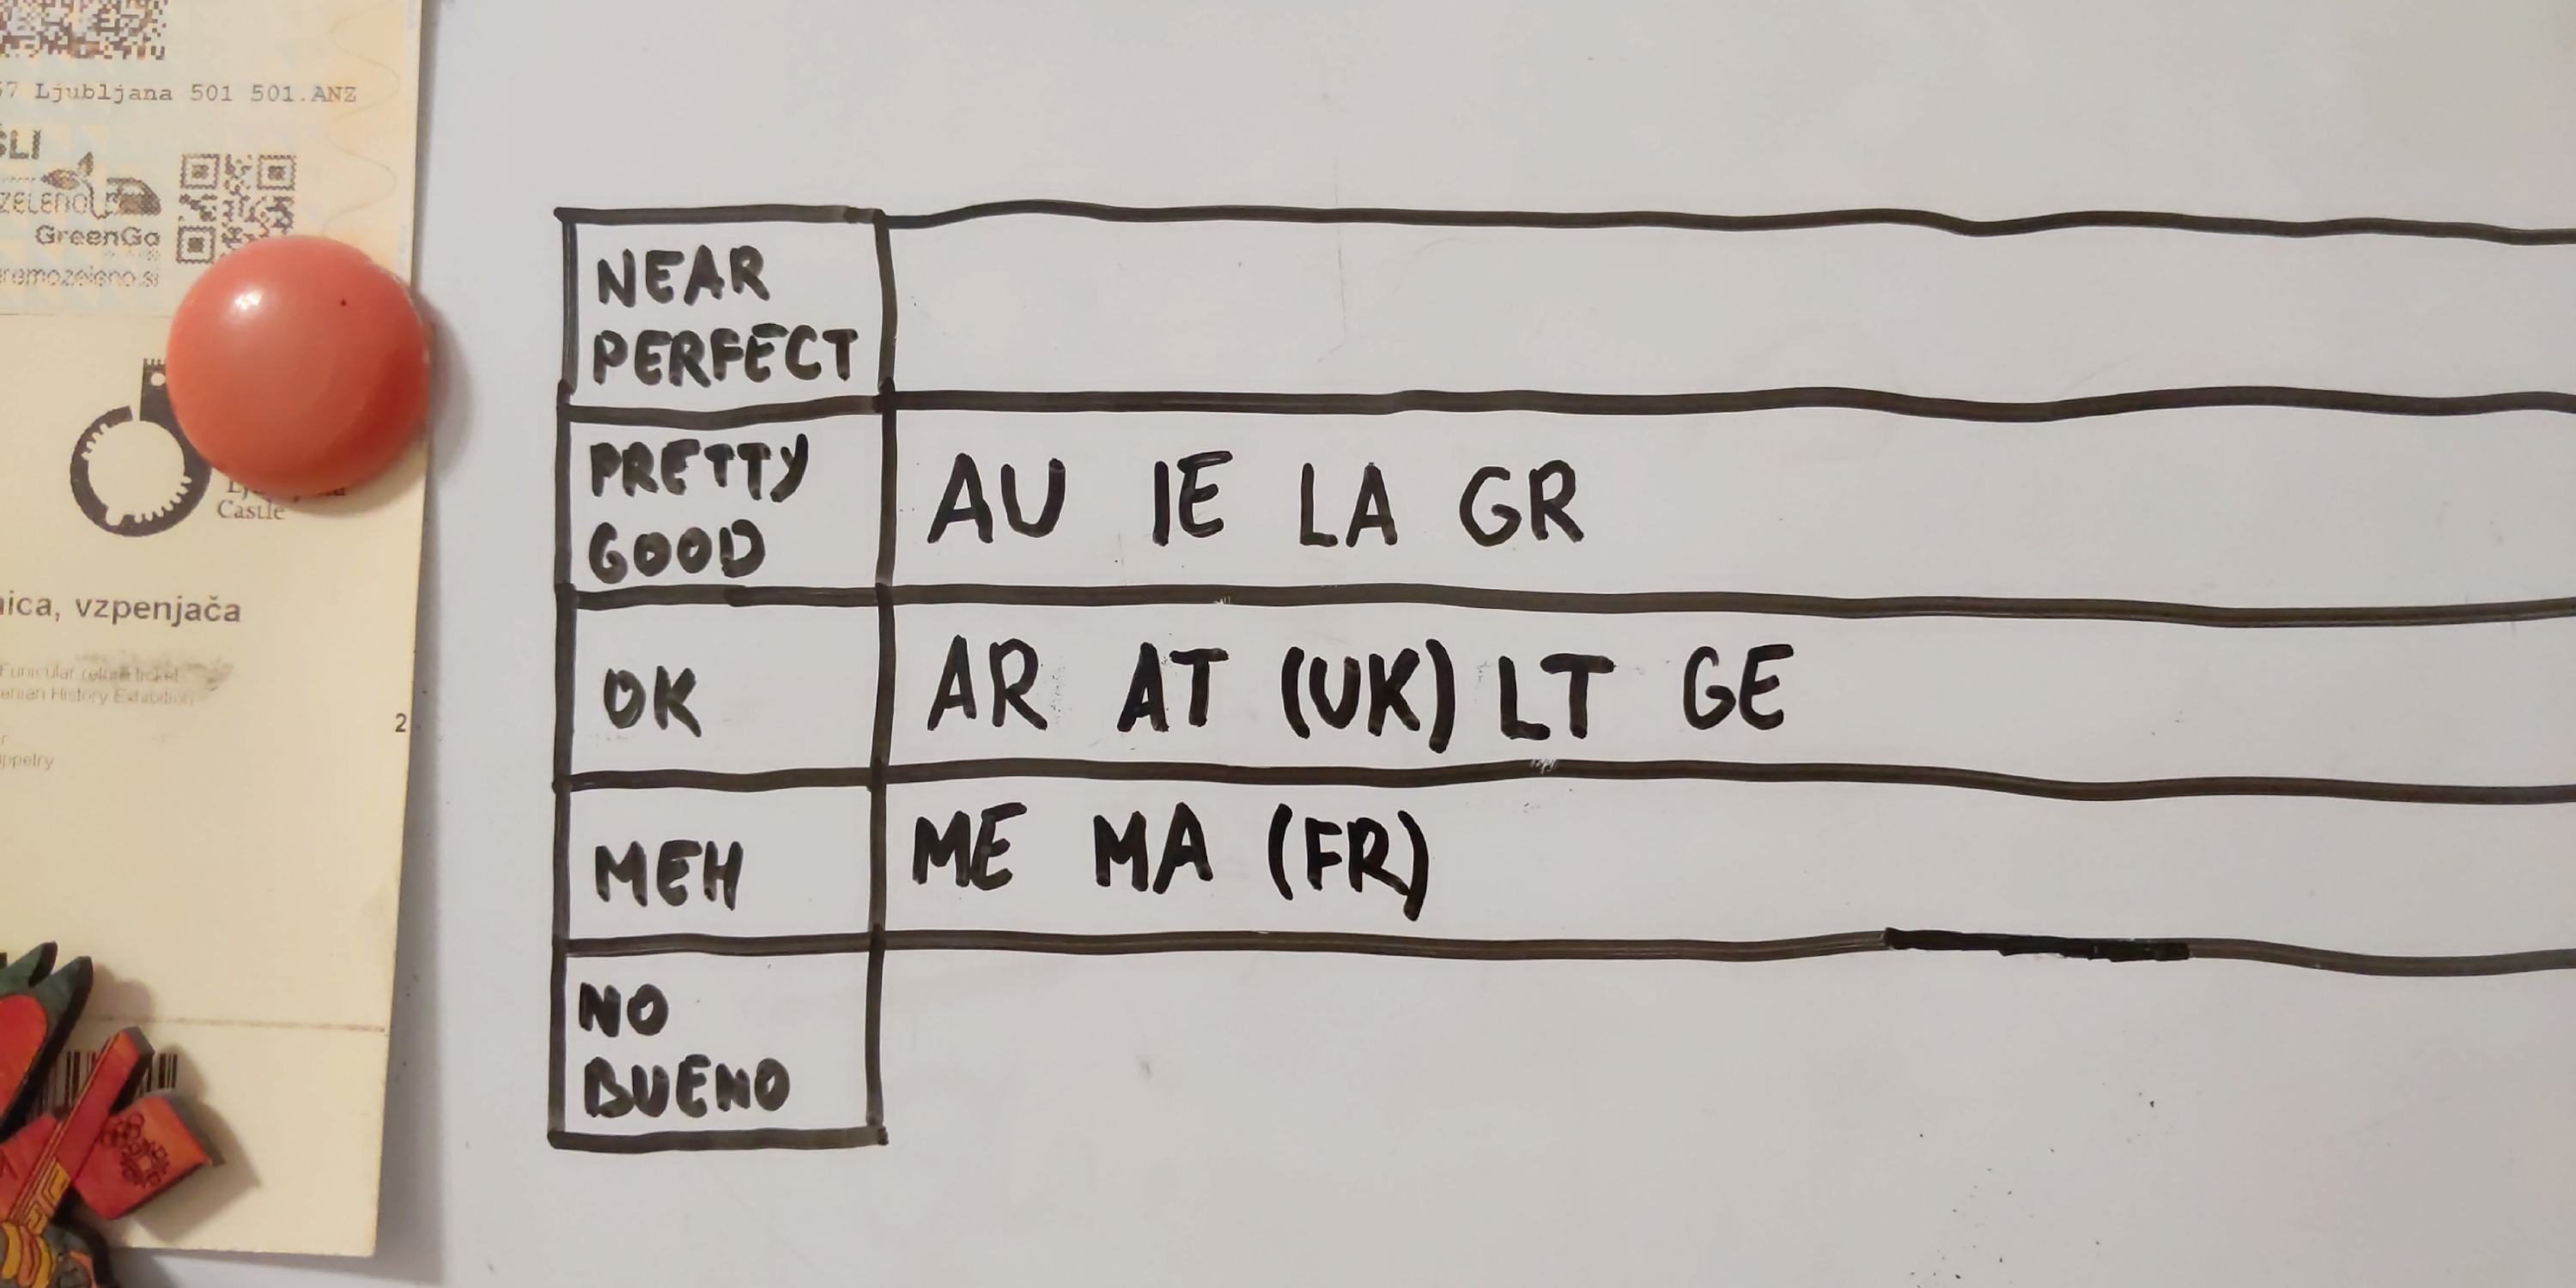 57 Ljubljana 501 501.ANZ
ŠLI
GreenGo
Castle
vzpenjača
Funicular return ticket
History Exhibition
2
NEAR
PERFECT
PRETTY
GOOD
AU IE LA GR
OK
AR AT (UK) LT GE
MEH
ME MA (FR)
NO
BUENO